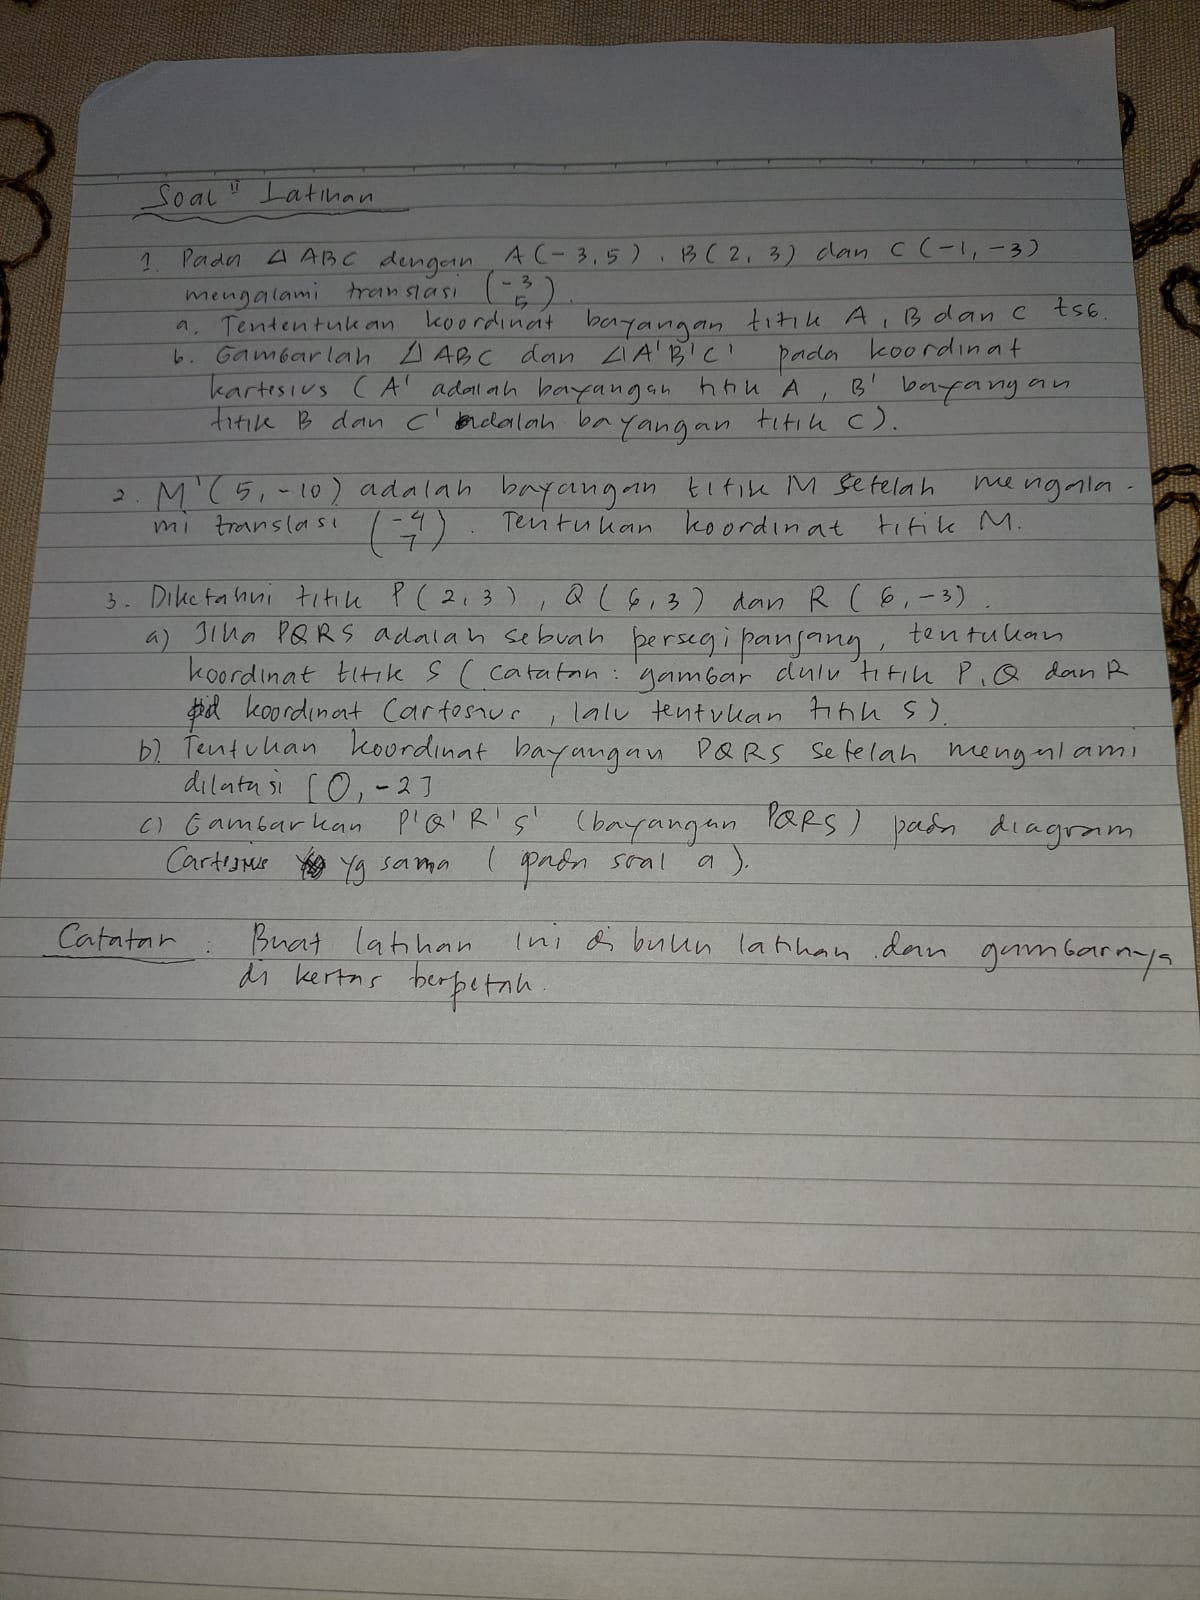 Soal" Latihan
1. Pada Δ ABC dengan A(-3,5), B(2,3) dan C(-1,-3)
mengalami translasi (-3 5).
a. Tententukan koordinat bayangan titik A, B dan C tsb.
b. Gambarlah Δ ABC dan ΔA'B'C' pada koordinat
kartesius (A' adalah bayangan titik A, B' bayangan
titik B dan C' adalah bayangan titik C).
2. M'(5,-10) adalah bayangan titik M setelah mengala-
mi translasi (-4 7). Tentukan koordinat titik M.
3. Diketahui titik P(2,3), Q(6,3) dan R(6,-3).
a) Jika PQRS adalah sebuah persegipanjang, tentukan
koordinat titik S (catatan: gambar dulu titik P, Q dan R
pd koordinat Cartesius, lalu tentukan titik S).
b). Tentukan koordinat bayangan PQRS setelah mengalami
dilatasi [O,-2]
c) Gambarkan P'Q'R'S' (bayangan PQRS) pada diagram
Cartesius yg sama (pada soal a).
Catatan: Buat latihan ini di buku latihan dan gambarnya
di kertas berpetak.